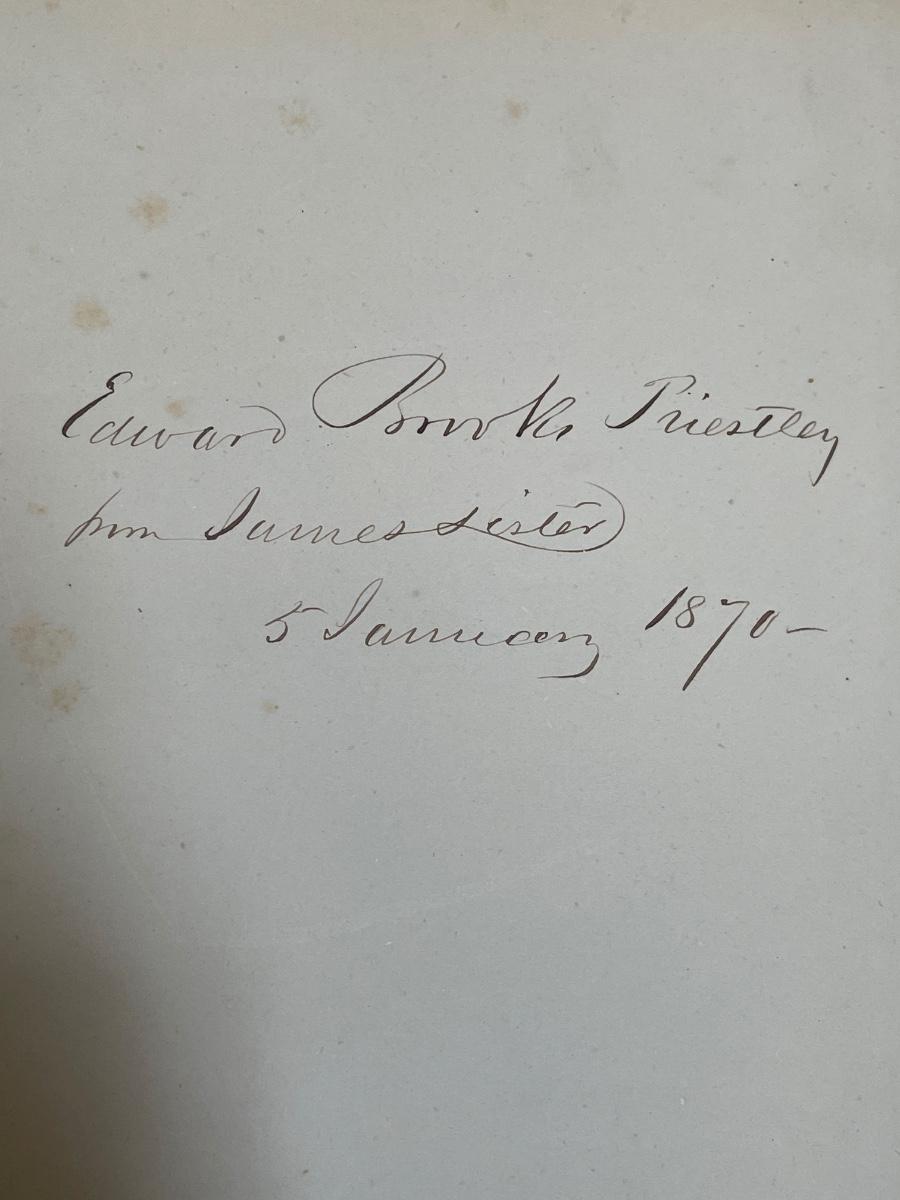 Edward Brooks Priestley
from James Lister
5 January 1870 -